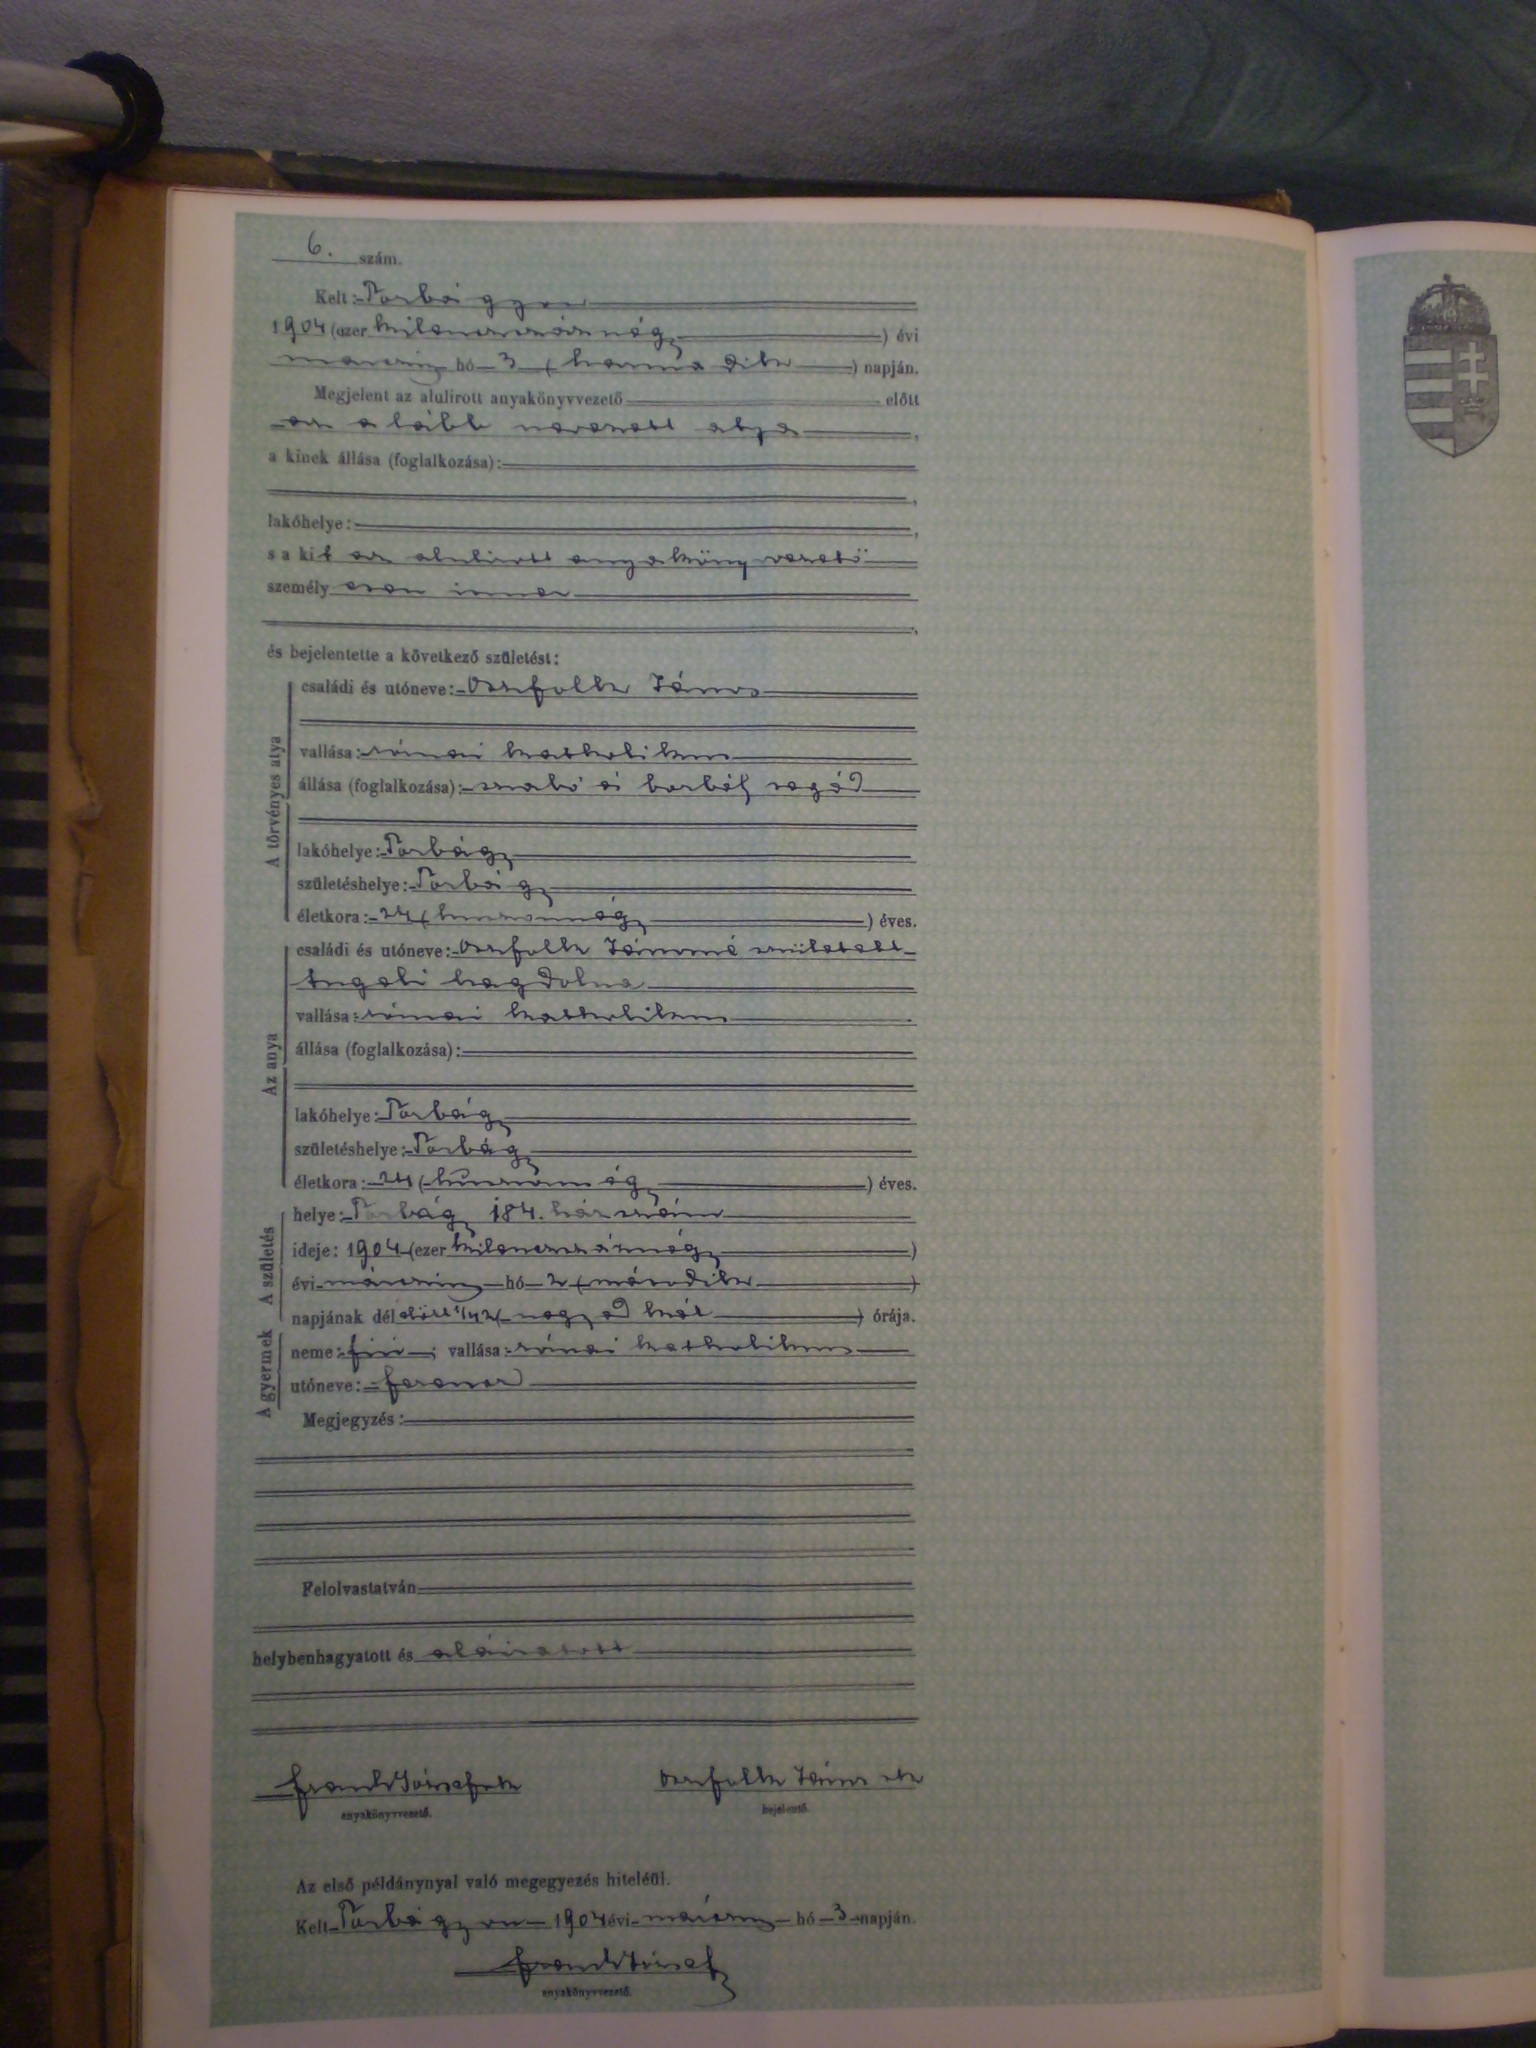 6. szám.
Kelt: Torbágyon
1904 (ezer kilenczszáznégy) évi
márczius hó 3 (harmadik) napján.
Megjelent az alulirott anyakönyvvezető előtt
az alább nevezett atya,
a kinek állása (foglalkozása):
lakóhelye:
s a kit az alulirott anyakönyvvezető
személyesen ismer
és bejelentette a következő születést:
A törvényes atya
családi és utóneve: Oszfolk János
vallása: római katholikus
állása (foglalkozása): szabó és borbély segéd
lakóhelye: Torbágy
születéshelye: Torbágy
életkora: 24 (huszonnégy) éves.
Az anya
családi és utóneve: Oszfolk Jánosné született
Angeli Magdolna
vallása: római katholikus
állása (foglalkozása):
lakóhelye: Torbágy
születéshelye: Torbágy
életkora: 24 (huszonnégy) éves.
A születés
helye: Torbágy 184. házszám
ideje: 1904 (ezer kilenczszáznégy)
évi márczius hó 2 (második)
napjának délelőtt 1/4 2 (negyed két) órája.
A gyermek
neme: fiú; vallása: római katholikus
utóneve: Ferencz
Megjegyzés:
Felolvastatván
helybenhagyatott és aláiratott
Frank József sk
Oszfolk János sk
anyakönyvvezető.
bejelentő.
Az első példánynyal való megegyezés hiteléül.
Kelt Torbágyon 1904 évi márczius hó 3 napján.
Frank József
anyakönyvvezető.